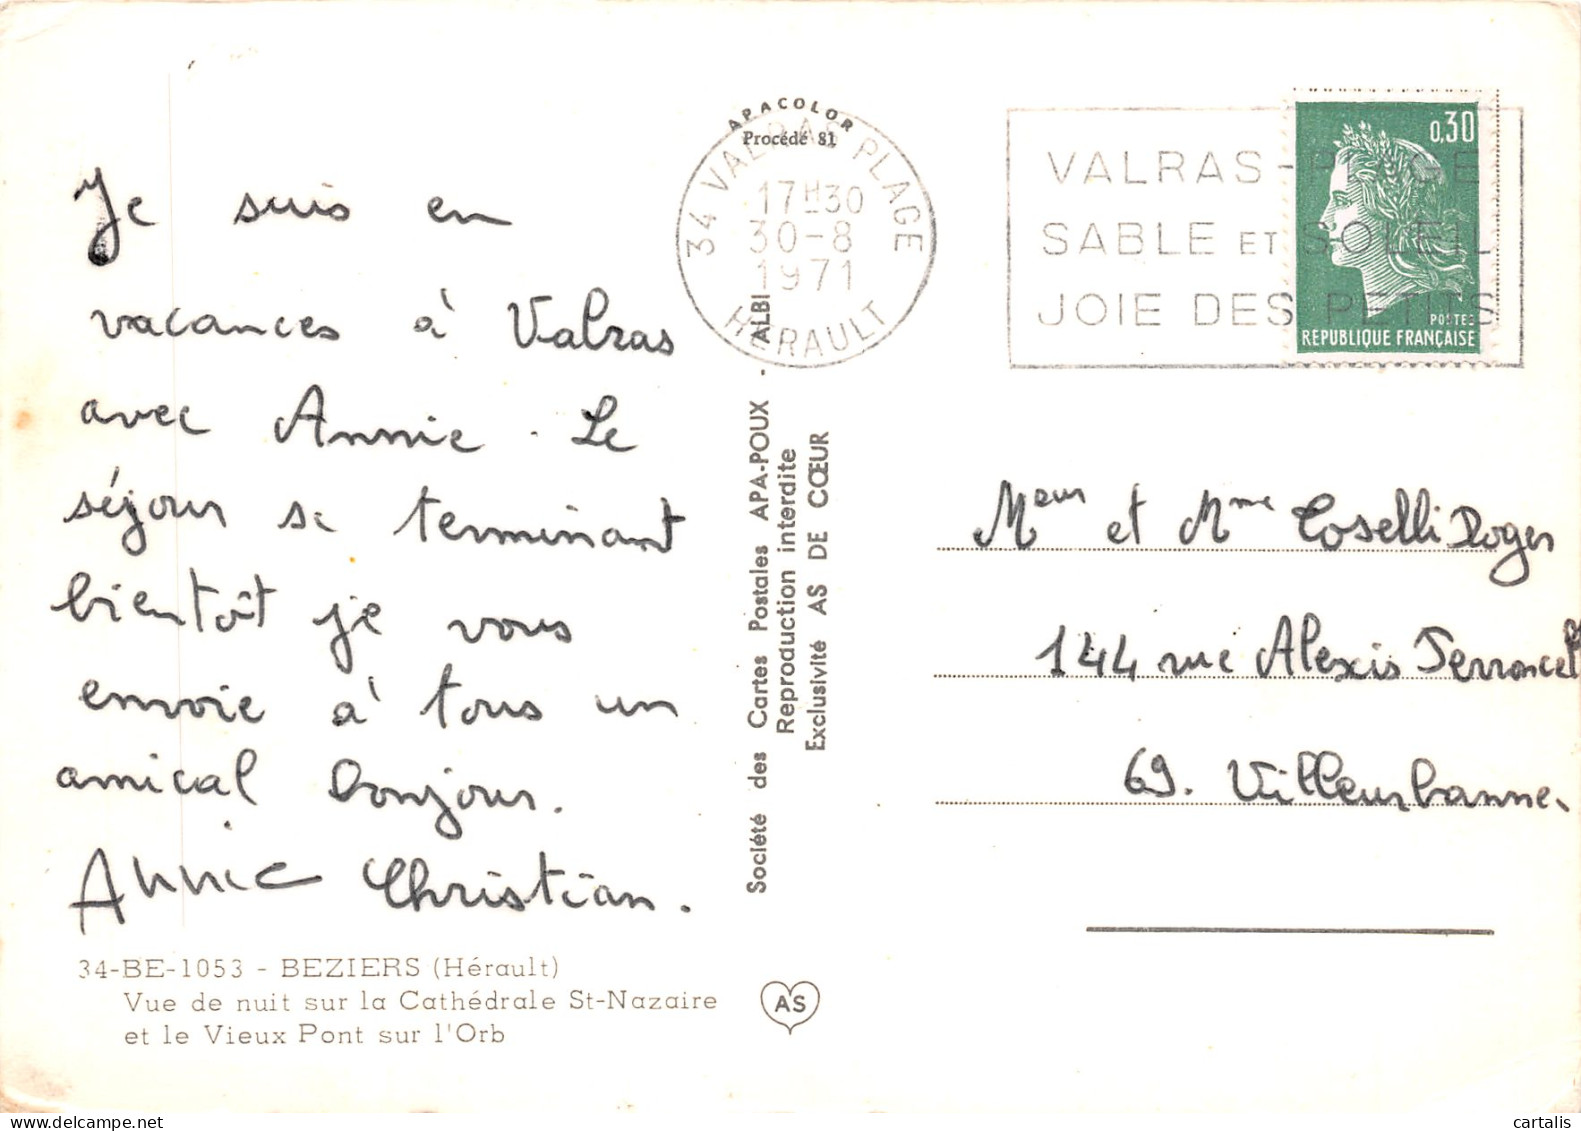 Je suis en
vacances à Valras
avec Annie. Le
séjour se terminant
bientôt je vous
envoie à tous un
amical bonjour.
Annie Christian.
34-BE-1053 - BEZIERS (Hérault)
Vue de nuit sur la Cathédrale St-Nazaire
et le Vieux Pont sur l'Orb
APACOLOR
Procédé 81
34 VALRAS PLAGE
17H30
30-8
1971
HERAULT
Société des Cartes Postales APA-POUX - ALBI
Reproduction interdite
Exclusivité AS DE CŒUR
AS
VALRAS-PLAGE
SABLE ET SOLEIL
JOIE DES PETITS
0,30
POSTES
REPUBLIQUE FRANÇAISE
Meur et Mme Coselli Roger
144 rue Alexis Perroncel
69. Villeurbanne.
cartalis